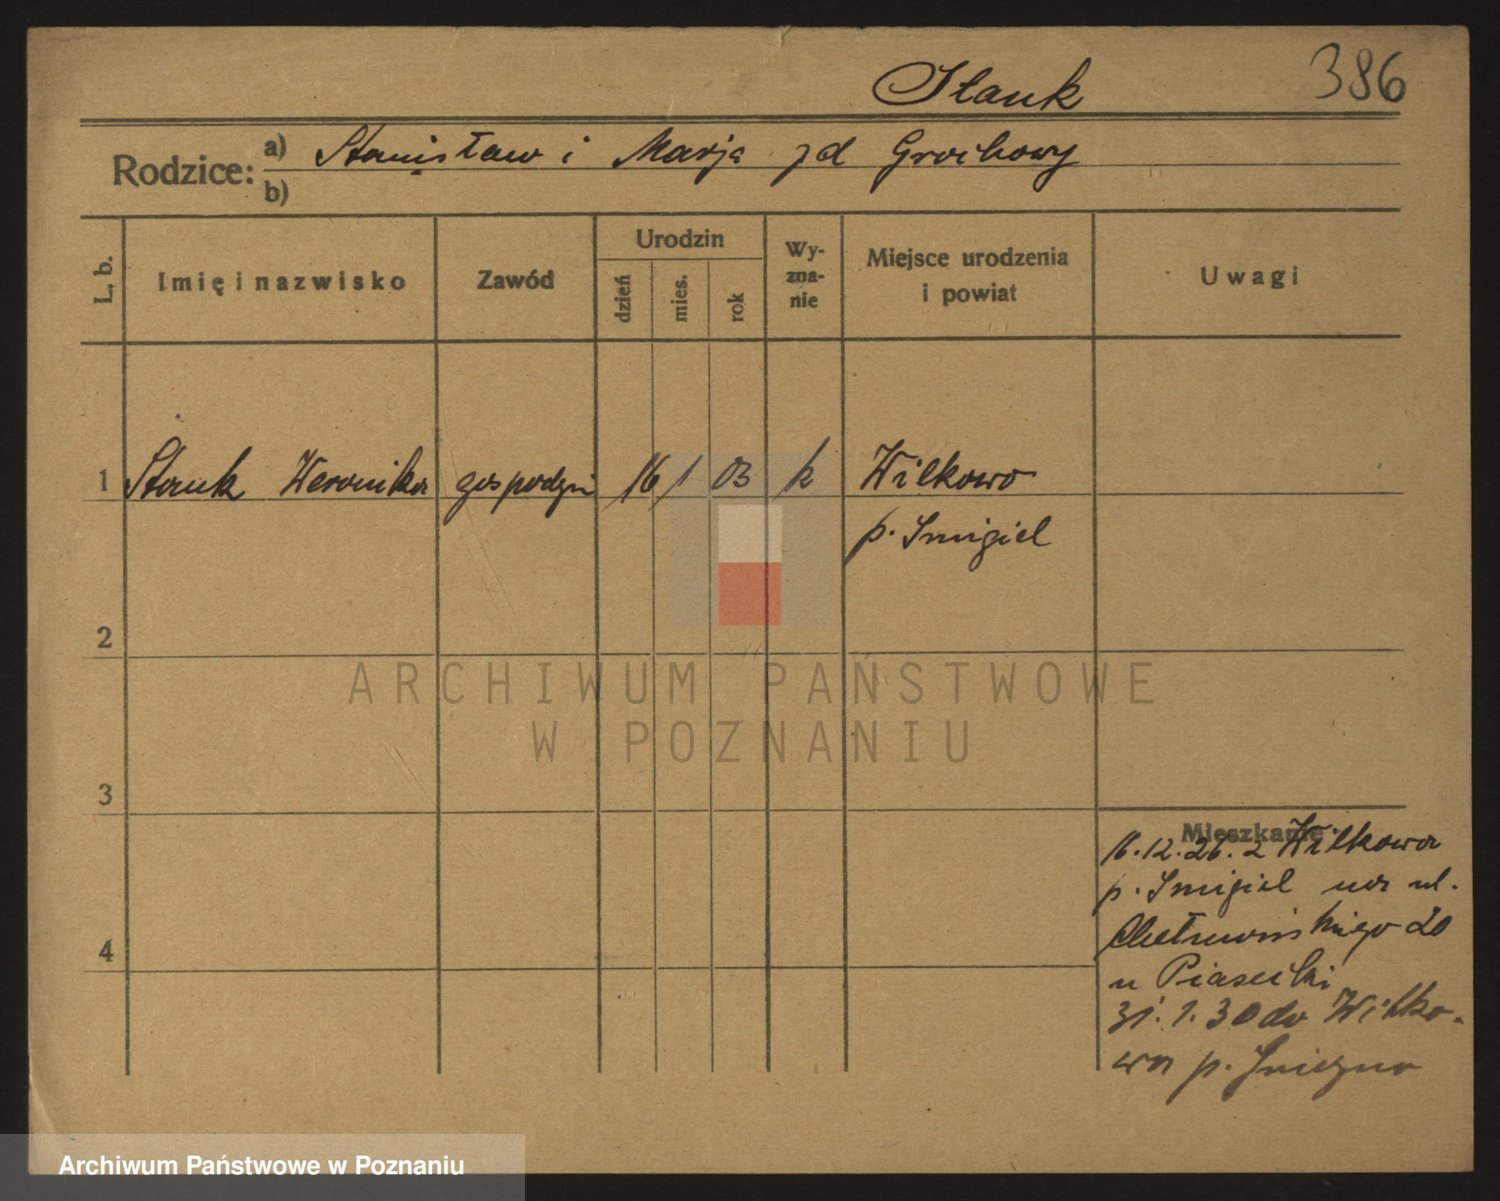 386
Stauk
Rodzice: a) Stanisław i Marja zd Grochowy
b)
L. b. Imię i nazwisko Zawód Urodzin dzień mies. rok Wy-zna-nie Miejsce urodzenia i powiat Uwagi
1 Stauk Weronika gospodyni 16 1 03 k Wilkowo
p. Śmigiel
2
ARCHIWUM PAŃSTWOWE
W POZNANIU
3
Mieszkanie
16.12.26. z Wilkowa
p. Śmigiel na ul.
20
4
u
31.1.30 do Wilko-
wa p. Gniezno
Archiwum Państwowe w Poznaniu